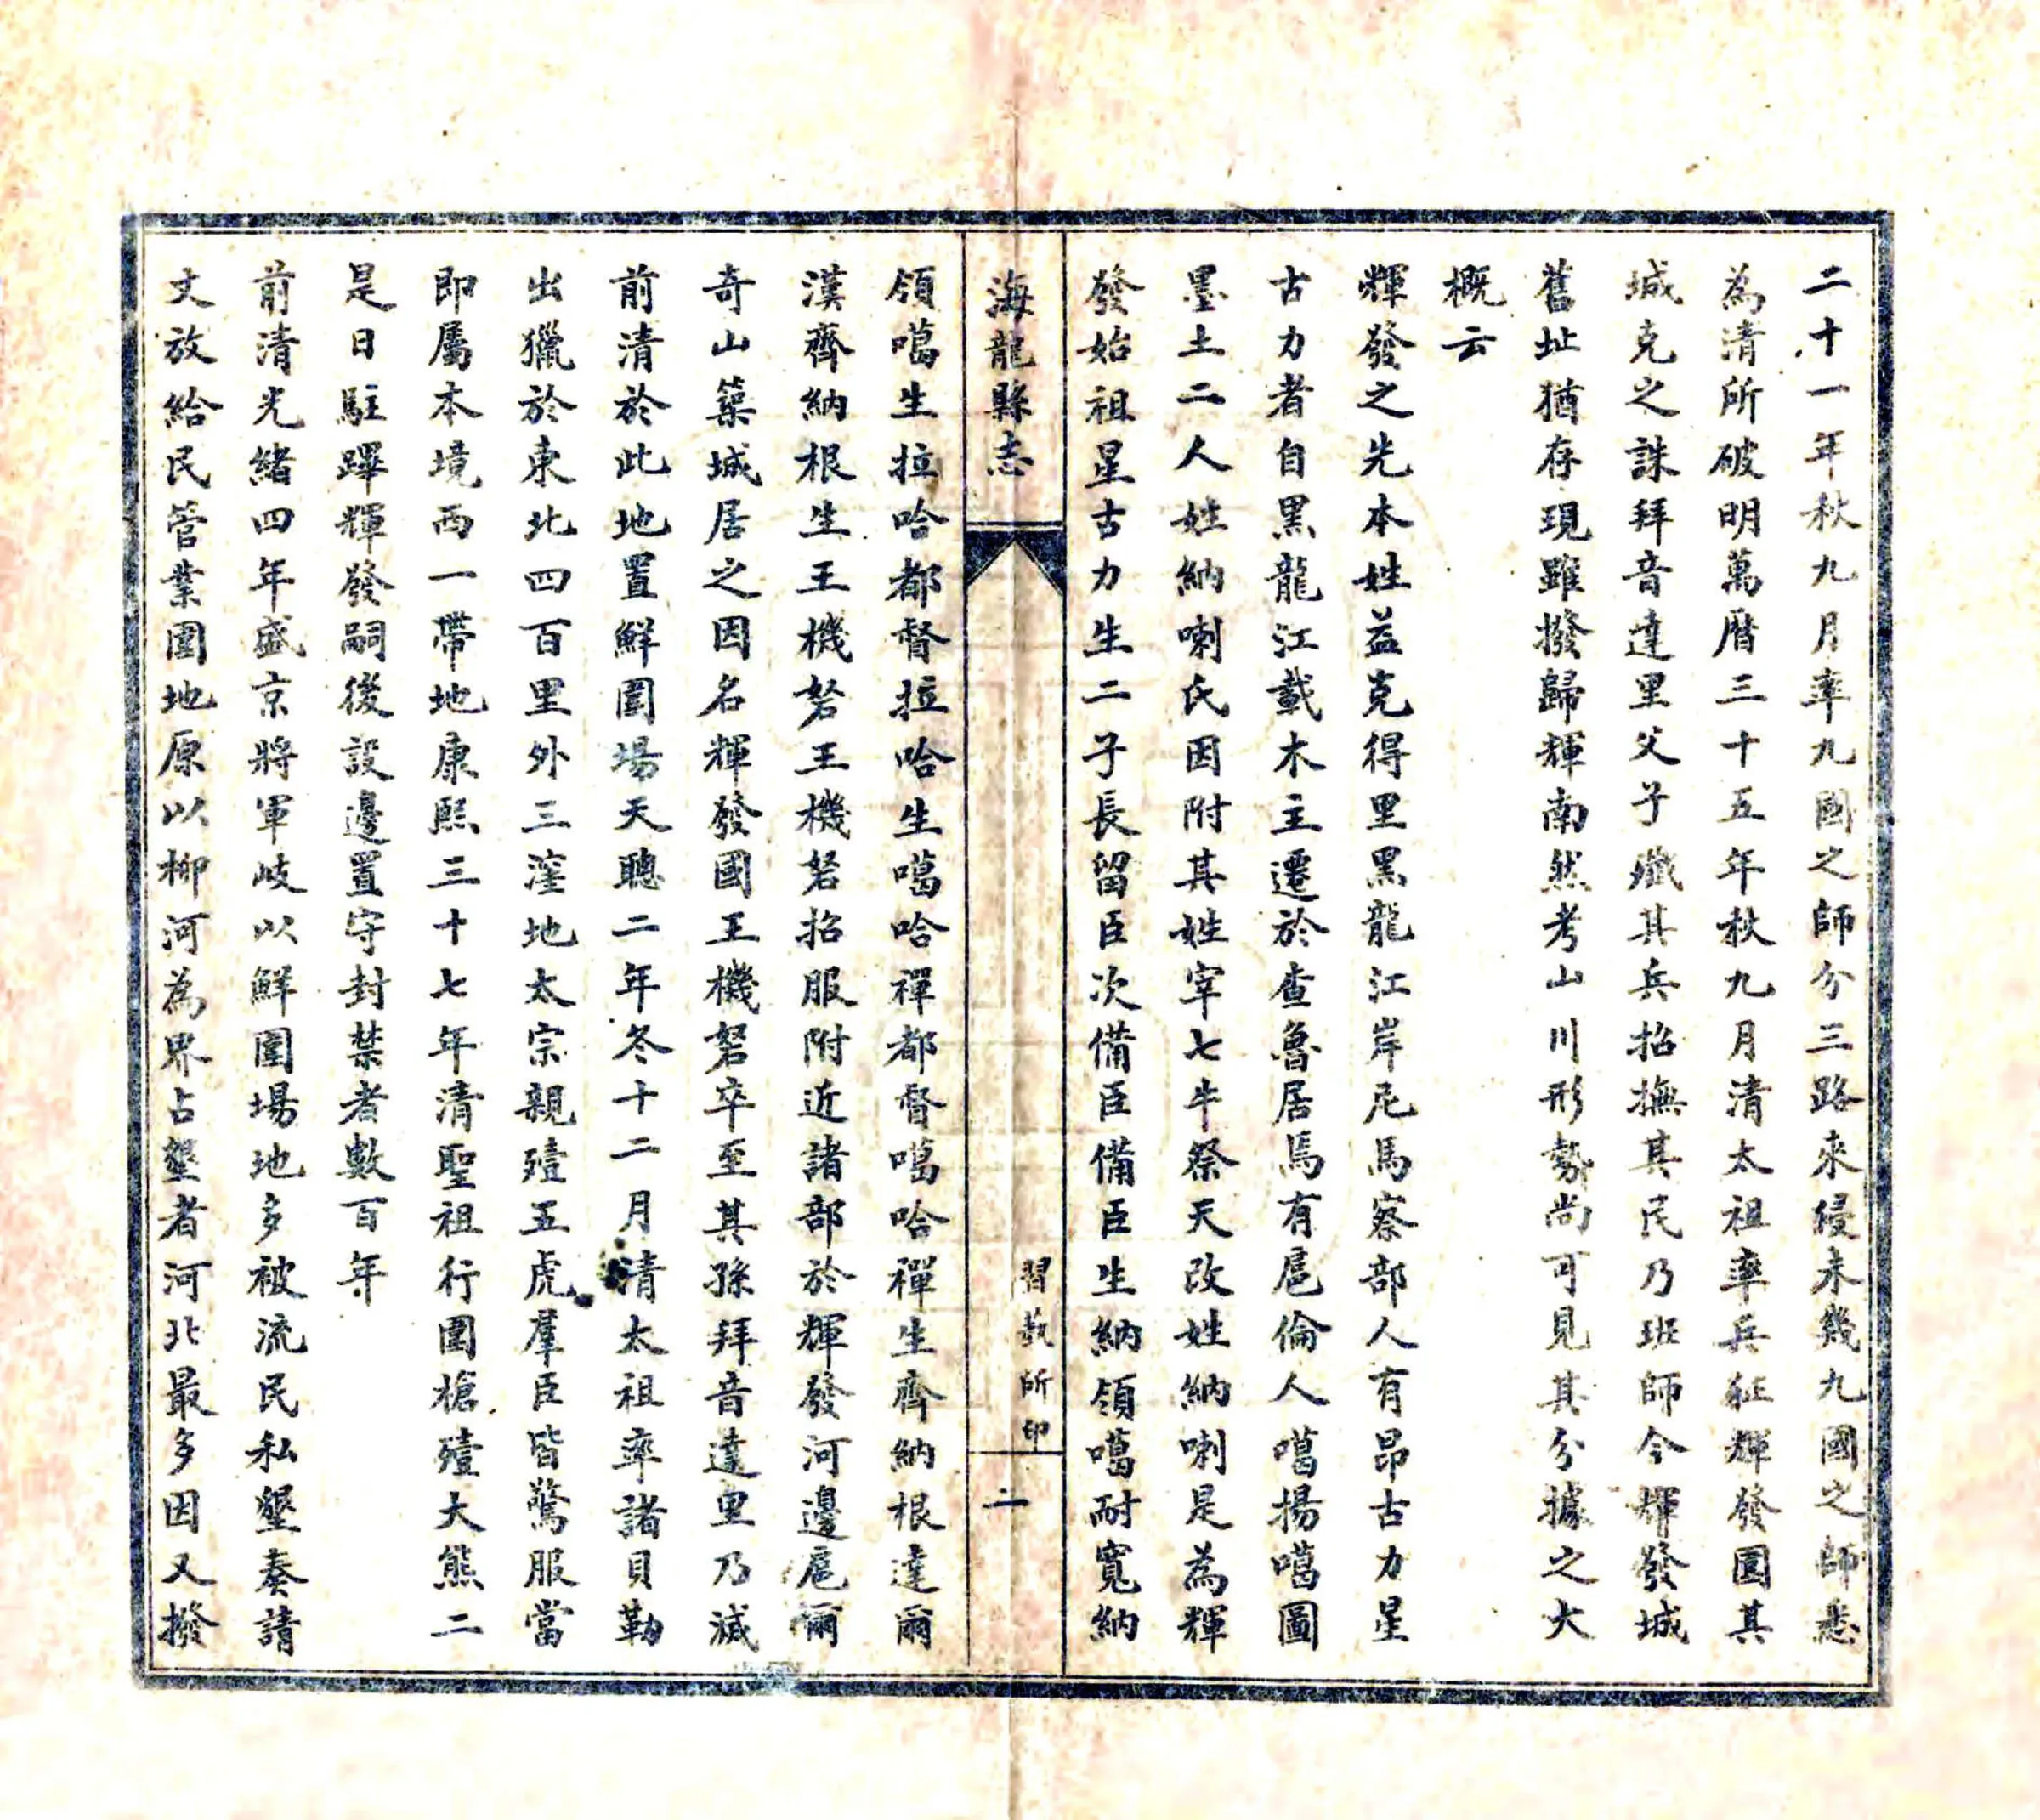 二十一年秋九月率九國之師分三路來侵未幾九國之師悉
為清所破明萬曆三十五年秋九月清太祖率兵征輝發圍其
城克之誅拜音達里父子殲其兵招撫其民乃班師今輝發城
舊址猶存現雖撥歸輝南然考山川形勢尚可見其分據之大
概云
輝發之先本姓益克得里黑龍江岸尼馬察部人有昂古力星
古力者自黑龍江載木主遷於查魯居焉有扈倫人噶揚噶圖
墨土二人姓納喇氏因附其姓宰七牛祭天改姓納喇是為輝
發始祖星古力生二子長留臣次備臣備臣生納領噶耐寬納
海龍縣志
習藝所印
二
領噶生拉哈都督拉哈生噶哈禪都督噶哈禪生齊納根達爾
漢齊納根生王機砮王機砮招服附近諸部於輝發河邊扈爾
奇山築城居之因名輝發國王機砮卒至其孫拜音達里乃滅
前清於此地置鮮圍場天聰二年冬十二月清太祖率諸貝勒
出獵於東北四百里外三窪地太宗親殪五虎羣臣皆驚服當
即屬本境西一帶地康熙三十七年清聖祖行圍槍殪大熊二
是日駐蹕輝發嗣後設邊置守封禁者數百年
前清光緒四年盛京將軍岐以鮮圍場地多被流民私墾奏請
丈放給民管業圍地原以柳河為界占墾者河北最多因又撥